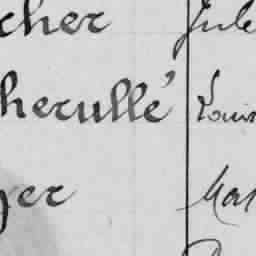 cher Jule
herullé Louis
yer Mar